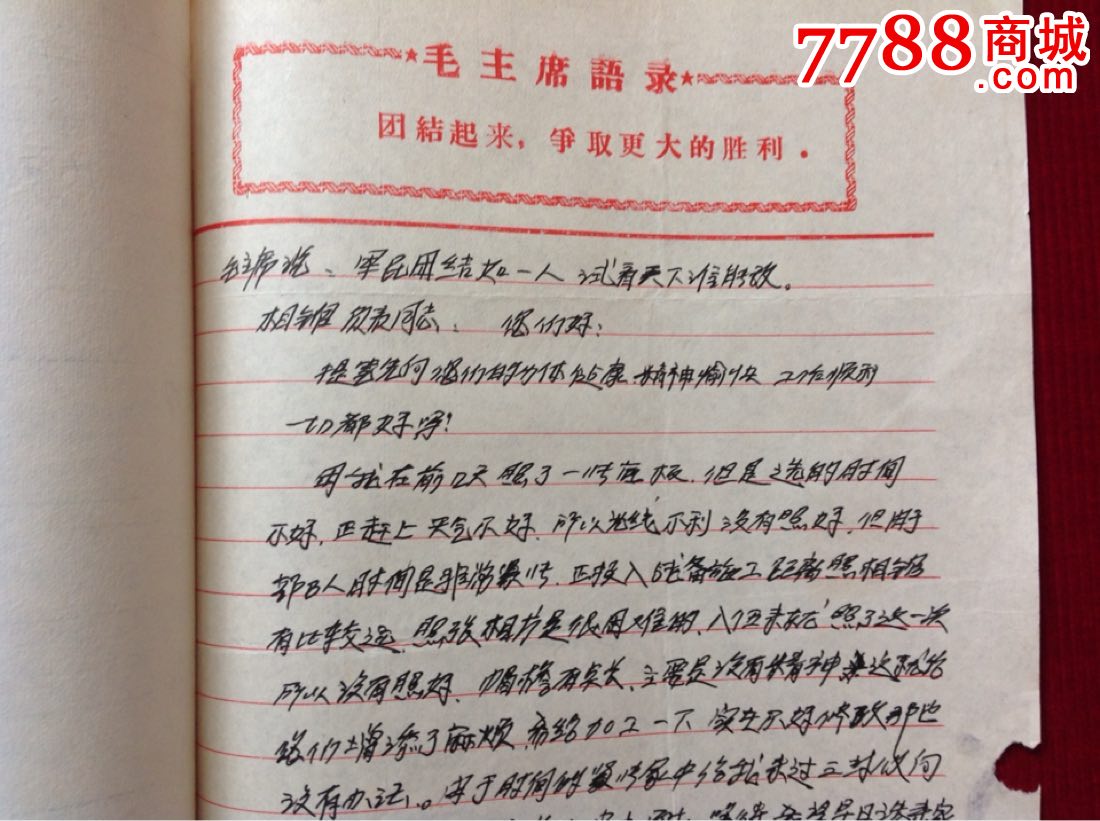 7788商城
.com
毛主席語录
团結起来，爭取更大的胜利．
毛主席说：军民团结如一人 试看天下谁能敌。
相馆负责同志： 您们好：
提笔先问您们的身体健康 精神愉快 工作顺利
一切都好吗？
因我在前几天照了一张底板，但是选的时间
不好，正赶上天气不好，所以光线不利没有照好，但由于
部队人时间是非常紧张，正投入战备施工距离照相馆
有比较远，照张相片是很困难的，入伍来才照了这一次
所以没有照好，帽檐有点长，主要是没有精神 这就给
您们增添了麻烦，希给加工一下 实在不好修改那也
没有办法。由于时间的紧张家中给我来过三封信向